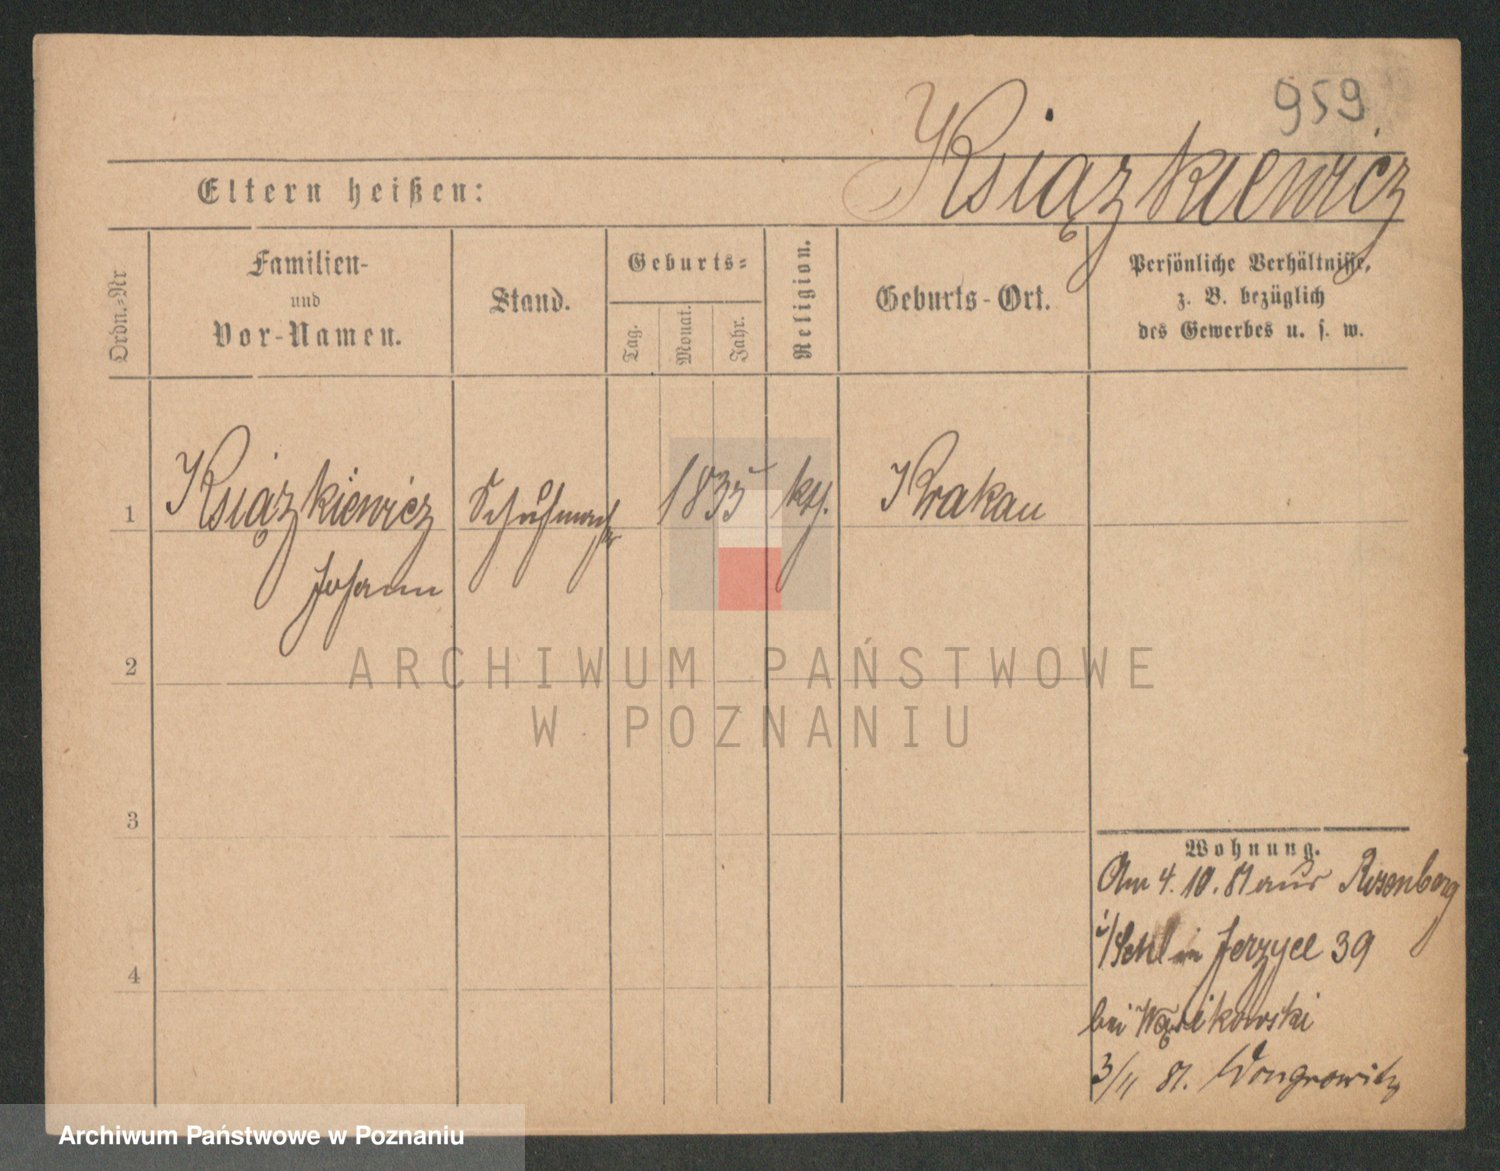 959
Książkiewicz
Eltern heißen:
Ordn.-Nr
Familien-
und
Vor-Namen.
Stand.
Geburts-
Tag.
Monat.
Jahr.
Religion.
Geburts-Ort.
Persönliche Verhältnisse,
z. B. bezüglich
des Gewerbes u. s. w.
1
Książkiewicz
Johann
Schuhmacher
1835
kth.
Krakau
2
ARCHIWUM PAŃSTWOWE
W POZNANIU
3
4
Wohnung.
Am 4. 10. 81 aus Rosenberg
in Jerzyce 39
bei
3/11 81. Wongrowitz
Archiwum Państwowe w Poznaniu